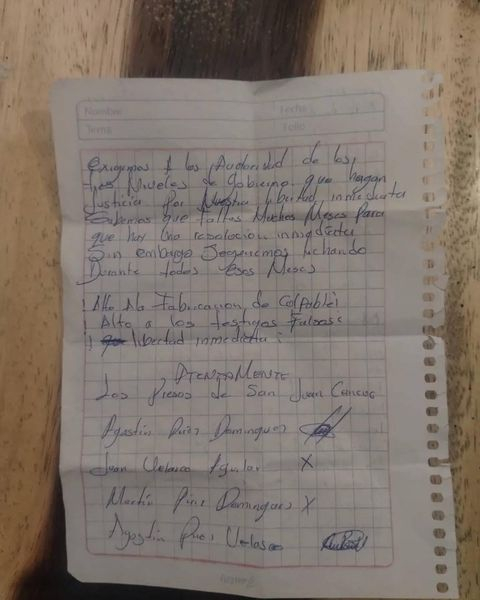 Nombre Fecha
Tema Folio
Exigimos A los Autoridad de los
tres Niveles de Gobierno que hagan
Justicia Por Nuestra libertad inmediata
Sabemos que faltas Muchos Meses Para
que hay Una resolucion inmediata
Sin embargo Seguiremos luchando
Durante todos Esos Meses
¡Alto Ala Fabricacion de Colpables¡
¡Alto a los testigos Falsos¡
¡ libertad inmediatia¡
AtentaMente
Los Presos de San Juan Cancuc
Agostin Pérez Dominguez
Juan Velasco Aguilar X
Martín Pérez Dominguez X
Agostin Perez Velasco